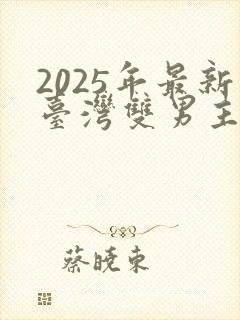 2025年最新
臺灣雙男主
蔡曉東